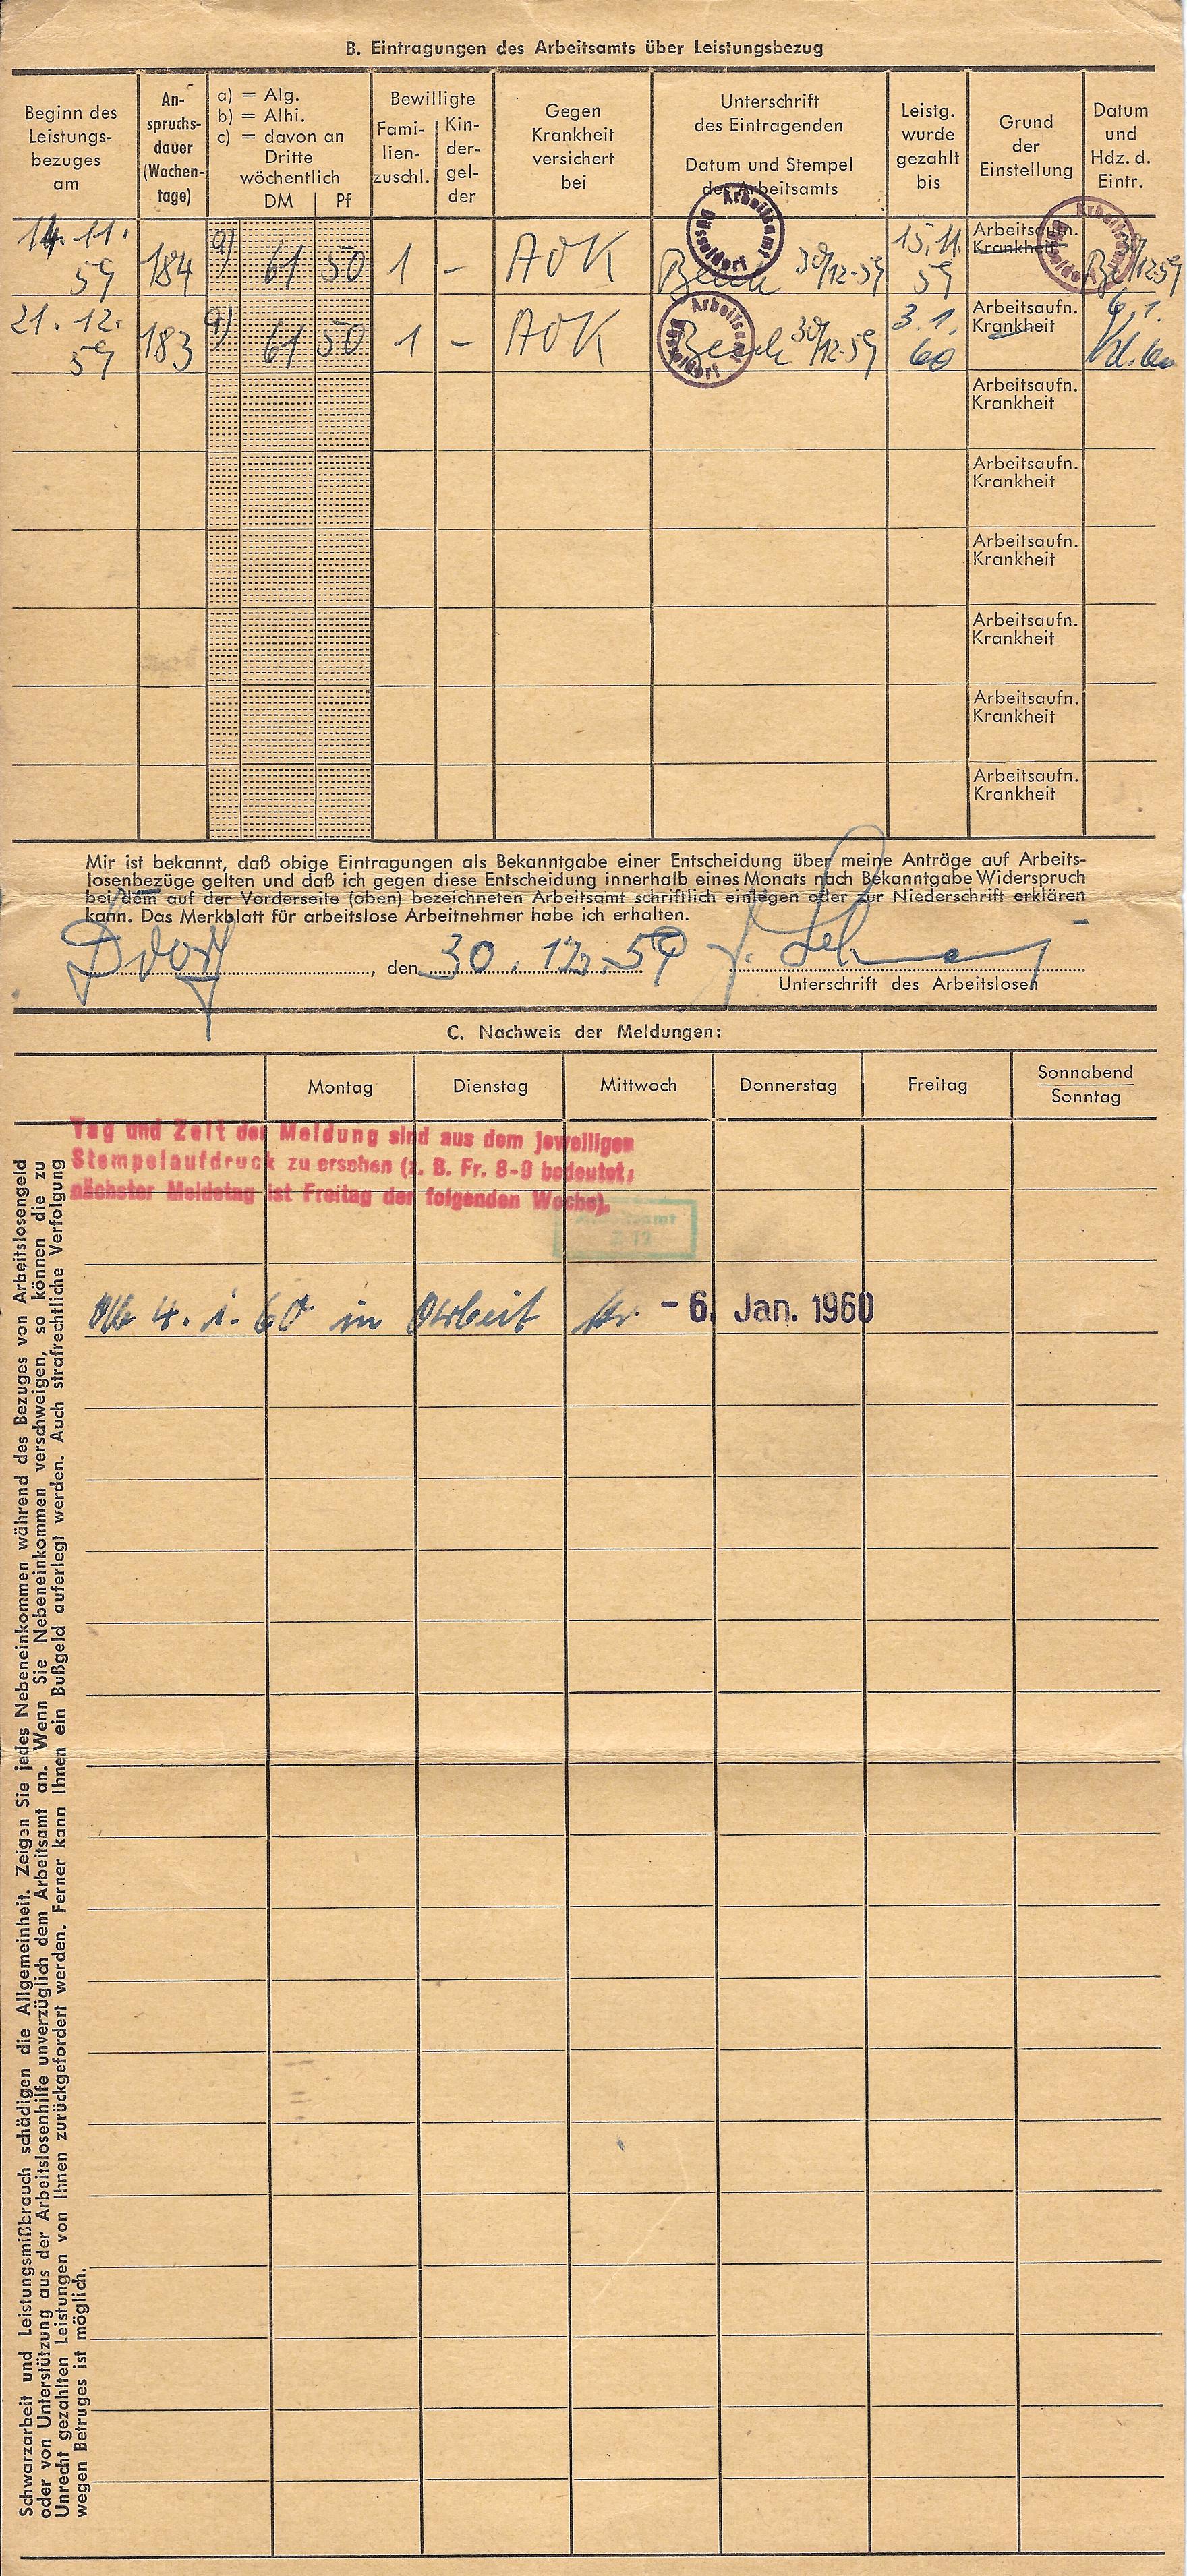 B. Eintragungen des Arbeitsamts über Leistungsbezug
Beginn des
Leistungs-
bezuges
am
An-
spruchs-
dauer
(Wochen-
tage)
a) = Alg.
b) = Alhi.
c) = davon an
Dritte
wöchentlich
DM Pf
Bewilligte
Fami-
lien-
zuschl.
Kin-
der-
gel-
der
Gegen
Krankheit
versichert
bei
Unterschrift
des Eintragenden
Datum und Stempel
des Arbeitsamts
Leistg.
wurde
gezahlt
bis
Grund
der
Einstellung
Datum
und
Hdz. d.
Eintr.
14. 11.
59
184
a)
61 50
1
-
AOK
Arbeitsamt
Düsseldorf
30/12.59
15.11.
59
Arbeitsaufn.
Krankheit
Arbeitsamt
Düsseldorf
30/1259
21. 12.
59
183
a)
61 50
1
-
AOK
Arbeitsamt
Düsseldorf
30/12.59
3.1.
60
Arbeitsaufn.
Krankheit
6.1.
60
Arbeitsaufn.
Krankheit
Arbeitsaufn.
Krankheit
Arbeitsaufn.
Krankheit
Arbeitsaufn.
Krankheit
Arbeitsaufn.
Krankheit
Arbeitsaufn.
Krankheit
Mir ist bekannt, daß obige Eintragungen als Bekanntgabe einer Entscheidung über meine Anträge auf Arbeits-
losenbezüge gelten und daß ich gegen diese Entscheidung innerhalb eines Monats nach Bekanntgabe Widerspruch
bei dem auf der Vorderseite (oben) bezeichneten Arbeitsamt schriftlich einlegen oder zur Niederschrift erklären
kann. Das Merkblatt für arbeitslose Arbeitnehmer habe ich erhalten.
Ddorf, den 30. 12. 59
Unterschrift des Arbeitslosen
C. Nachweis der Meldungen:
Montag
Dienstag
Mittwoch
Donnerstag
Freitag
Sonnabend
Sonntag
Tag und Zeit der Meldung sind aus dem jeweiligen
Stempelaufdruck zu ersehen (z. B. Fr. 8-9 bedeutet,
nächster Meldetag ist Freitag der folgenden Woche).
Ab 4. 1. 60 in Arbeit - 6. Jan. 1960
Schwarzarbeit und Leistungsmißbrauch schädigen die Allgemeinheit. Zeigen Sie jedes Nebeneinkommen während des Bezuges von Arbeitslosengeld
oder von Unterstützung aus der Arbeitslosenhilfe unverzüglich dem Arbeitsamt an. Wenn Sie Nebeneinkommen verschweigen, so können die zu
Unrecht gezahlten Leistungen von Ihnen zurückgefordert werden. Ferner kann Ihnen ein Bußgeld auferlegt werden. Auch strafrechtliche Verfolgung
wegen Betruges ist möglich.